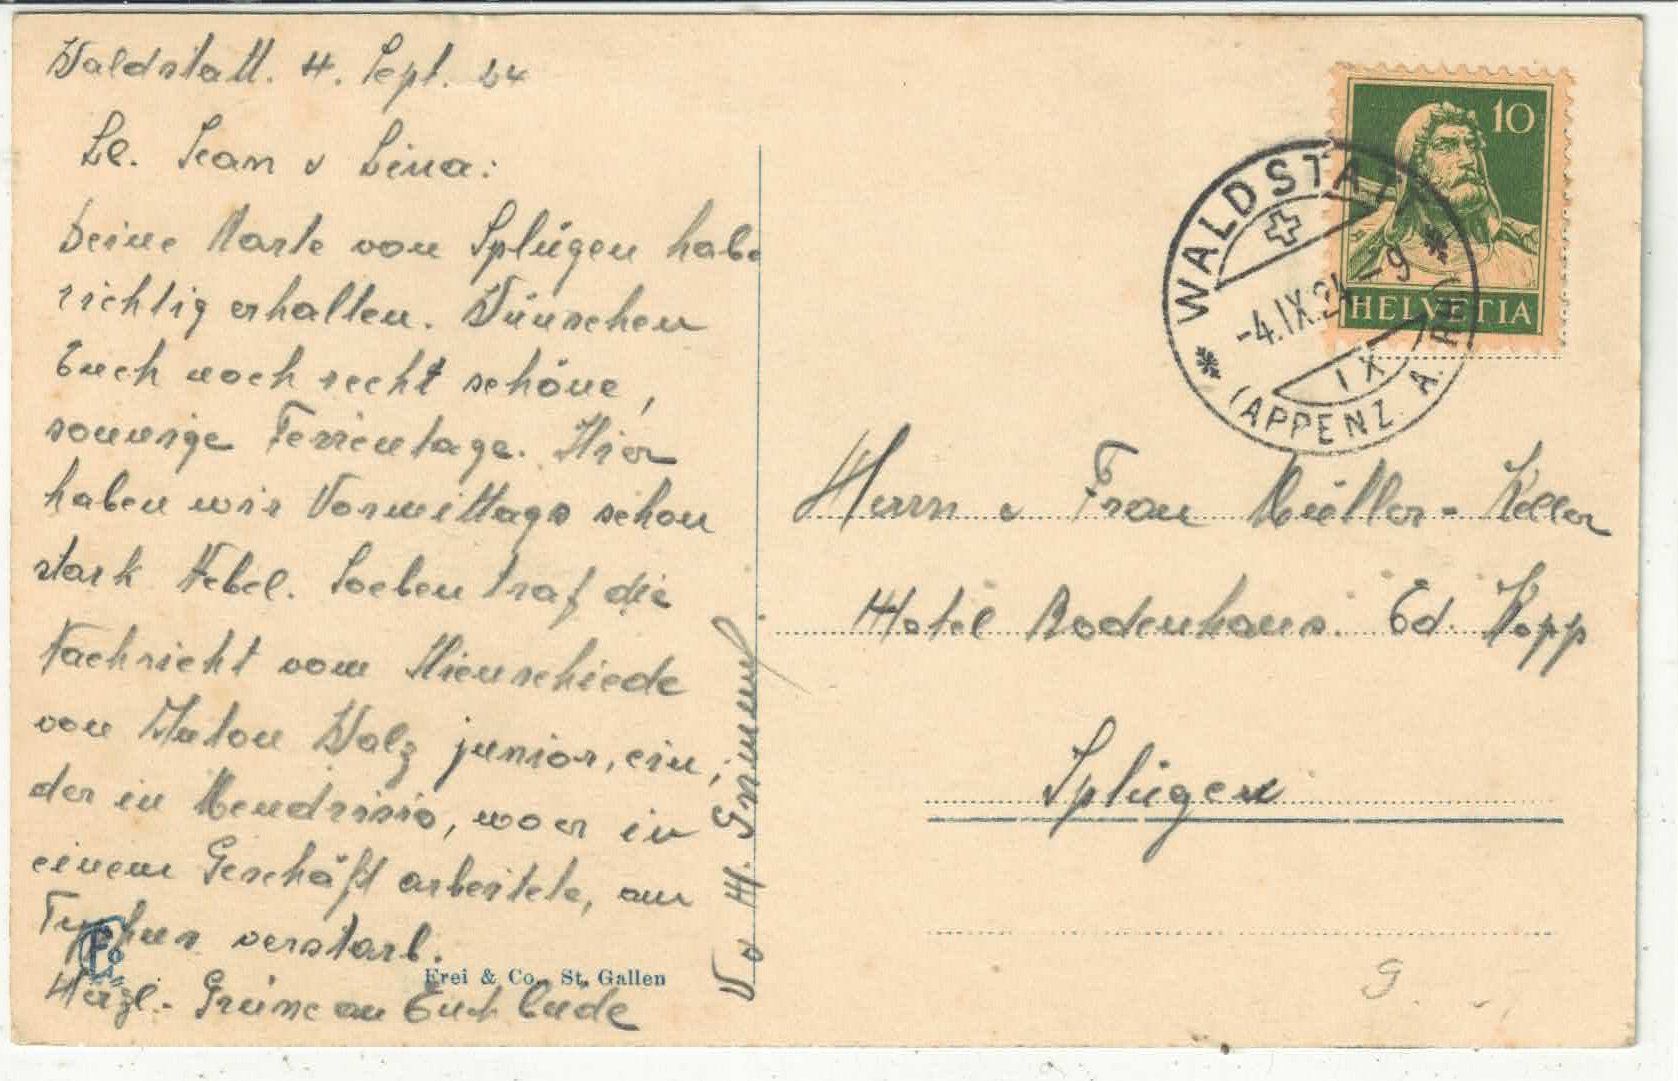 Waldstatt. 4. Sept. 24
Lb. Jean u Lina:
Deine Karte von Splügen habe
richtig erhalten. Wünschen
Euch noch recht schöne,
sonnige Ferrientage. Hier
haben wir Vormittags schon
stark Nebel. Soeben traf die
Nachricht vom Hienschiede
von Anton Walz junior, ein,
der in Mendrisio, wo er in
einem Geschäft arbeitete, am
Typhus verstarb.
Herzl. Grüsse an Euch beide
V. u H.
Frei & Co., St. Gallen
WALDSTATT
-4.IX.24-9
IX
(APPENZ. A. RH.)
10
HELVETIA
Herrn u Frau Müller-Keller
Hotel Bodenhaus. Ed. Kopp
Splügen